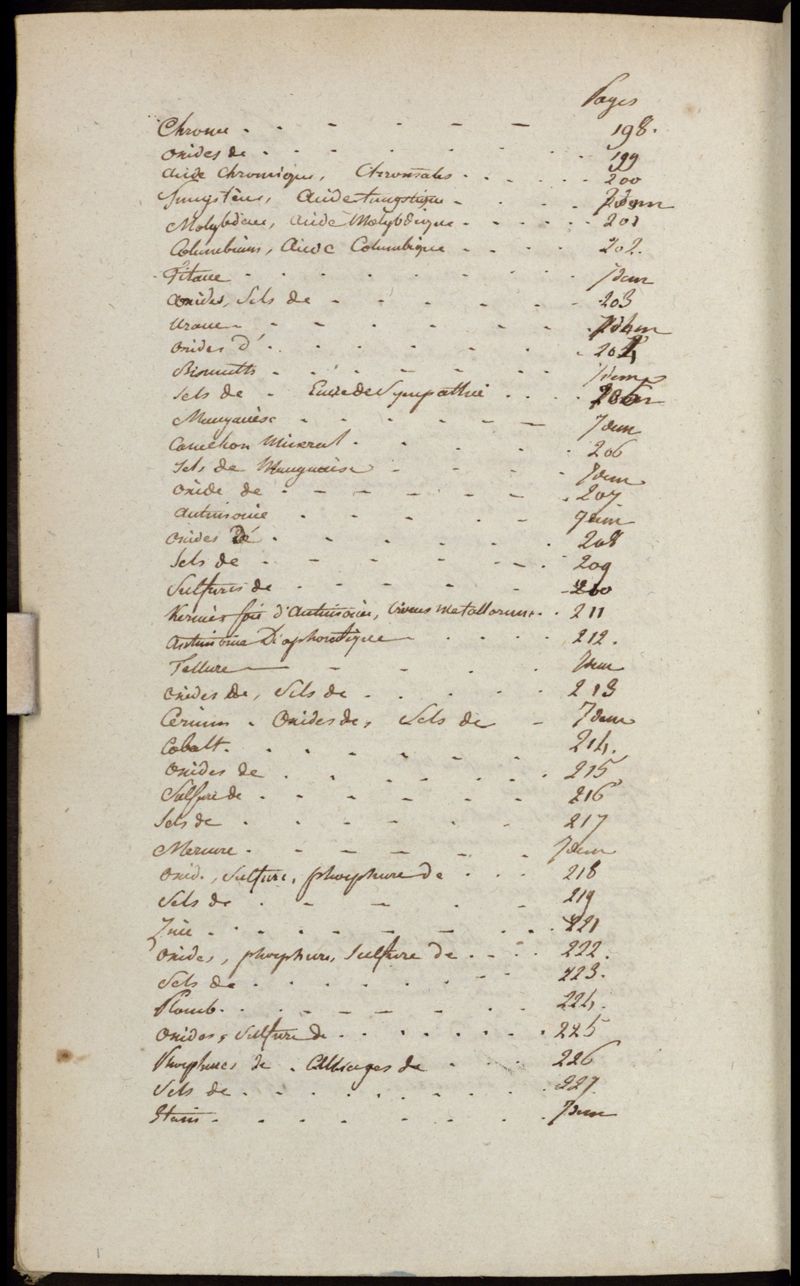 Pages
Chrome - - - - - - 198.
oxides de - - - - - - 199
Acide Chromique, Chromates - - - - - 200
Tungstène, Acide tungstique - - - - Idem
Molybdène, Acide Molybdique - - - - - 201
Columbium, Acide Columbique - - - - 202.
Titane - - - - - - - Idem
oxides, Sels de - - - - - - 203
Urane - - - - - - Idem
oxides d' - - - - - - - 204
Bismuth - - - - - - - Idem
Sels de - Encre de Sympathie - - - - 205
Manganèse - - - - - - Idem
Caméléon Minéral - - - - 206
Sels de Manganèse - - - - Idem
oxide de - - - - - - - 207
Antimoine - - - - - Idem
oxides d' - - - - - - 208
Sels de - - - - - - - 209
Sulfures de - - - - - - 210
Kermès foie d'Antimoine, Crocus metallorum - - 211
Antimoine Diaphorétique - - - - 212.
Tellure - - - - Idem
oxides de, Sels de - - - - - 213
Cerium - Oxides de, Sels de - Idem
Cobalt - - - - - - - 214.
oxides de - - - - - - - 215
Sulfure de - - - - - - 216
Sels de - - - - - - 217
Mercure - - - - - - Idem
oxid., Sulfure, phosphure de - - - 218
Sels de - - - - - 219
Zinc - - - - - - - - 221
Oxides, phosphure, Sulfure de - - - - 222.
Sels de - - - - - - - 223.
Plomb - - - - - - - 224.
oxides, Sulfure de - - - - - - - 225
Phosphures de - Alliages de - - - 226
Sels de - - - - - - - - 227.
Etain - - - - - - - Idem